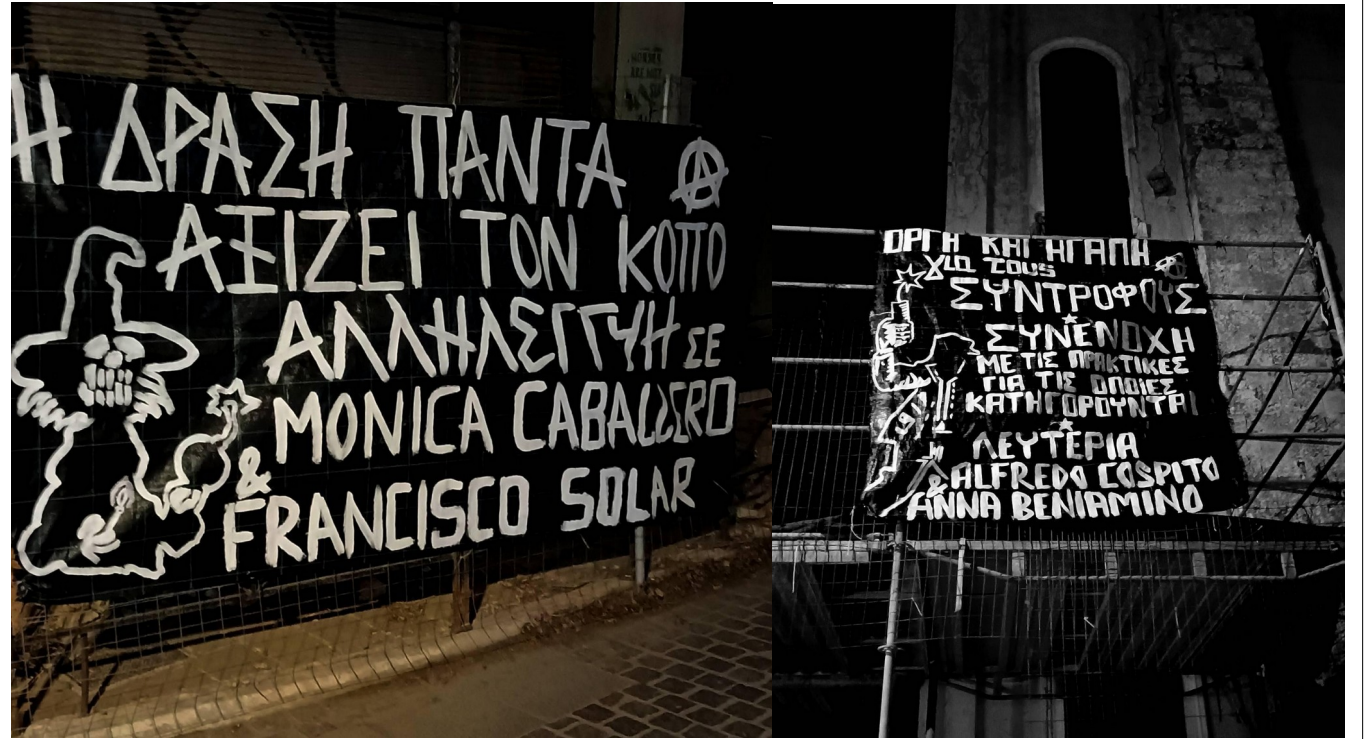 Η ΔΡΑΣΗ ΠΑΝΤΑ
ΑΞΙΖΕΙ ΤΟΝ ΚΟΠΟ
ΑΛΛΗΛΕΓΓΥΗ ΣΕ
MONICA CABALLERO
&
FRANCISCO SOLAR
ΟΡΓΗ ΚΑΙ ΑΓΑΠΗ
για τους
ΣΥΝΤΡΟΦΟΥΣ
ΣΥΝΕΝΟΧΗ
ΜΕ ΤΙΣ ΠΡΑΚΤΙΚΕΣ
ΓΙΑ ΤΙΣ ΟΠΟΙΕΣ
ΚΑΤΗΓΟΡΟΥΝΤΑΙ
ΛΕΥΤΕΡΙΑ
& ALFREDO COSPITO
ANNA BENIAMINO